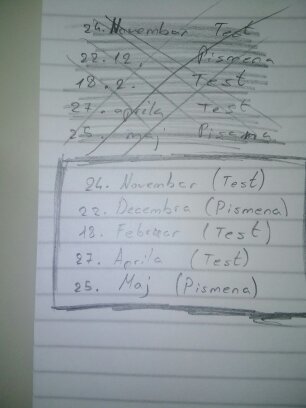 24. Novembar Test
22. 12. Pismena
18. 2. Test
27. aprila Test
25. maj Pismena
24. Novembar (Test)
22. Decembra (Pismena)
18. Februar (Test)
27. Aprila (Test)
25. Maj (Pismena)